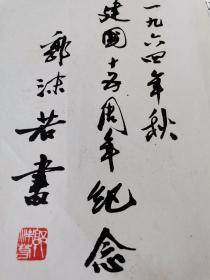 一九六四年秋
建国十五周年纪念
郭沫若书